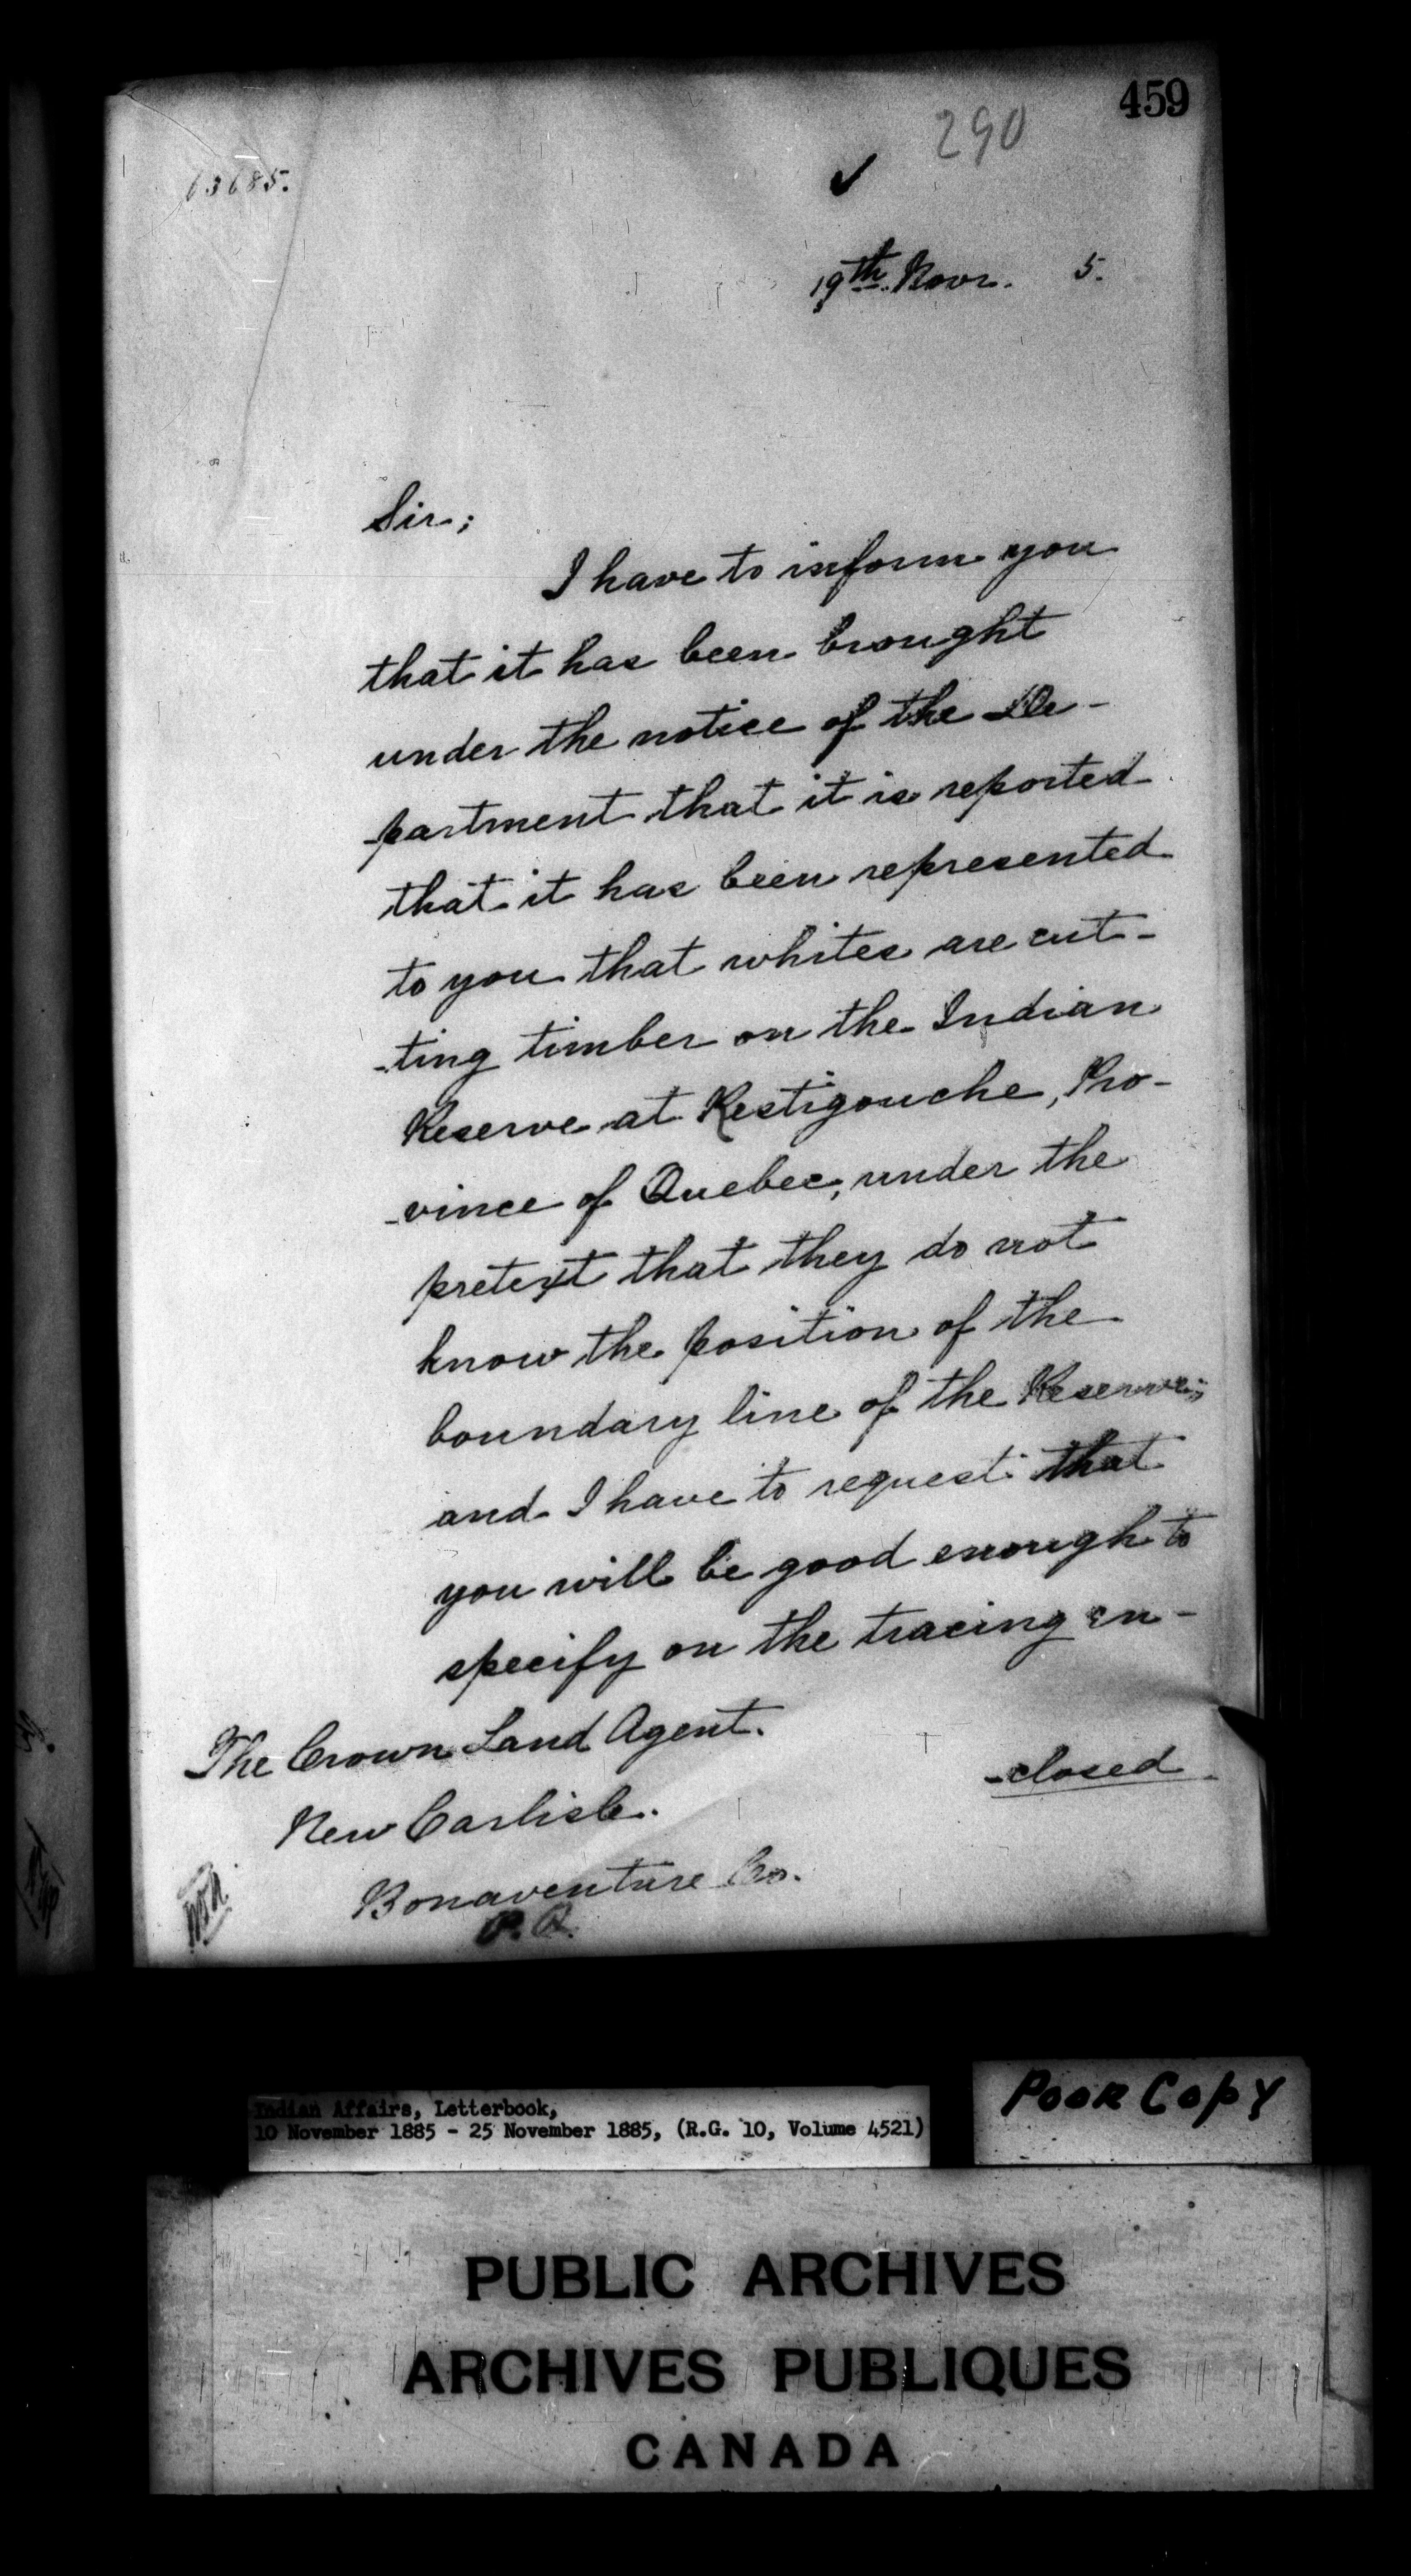 459
290
63685.
19th. Novr. 5.
Sir;
I have to inform you
that it has been brought
under the notice of the De-
-partment that it is reported
that it has been represented
to you that whites are cut-
-ting timber on the Indian
Reserve at Restigouche, Pro-
-vince of Quebec, under the
pretext that they do not
know the position of the
boundary line of the Reserve;
and I have to request that
you will be good enough to
specify on the tracing en-
-closed
The Crown Land Agent.
New Carlisle.
Bonaventure Co.
P.Q.
Poor Copy
Indian Affairs, Letterbook,
10 November 1885 - 25 November 1885, (R.G. 10, Volume 4521)
PUBLIC ARCHIVES
ARCHIVES PUBLIQUES
CANADA